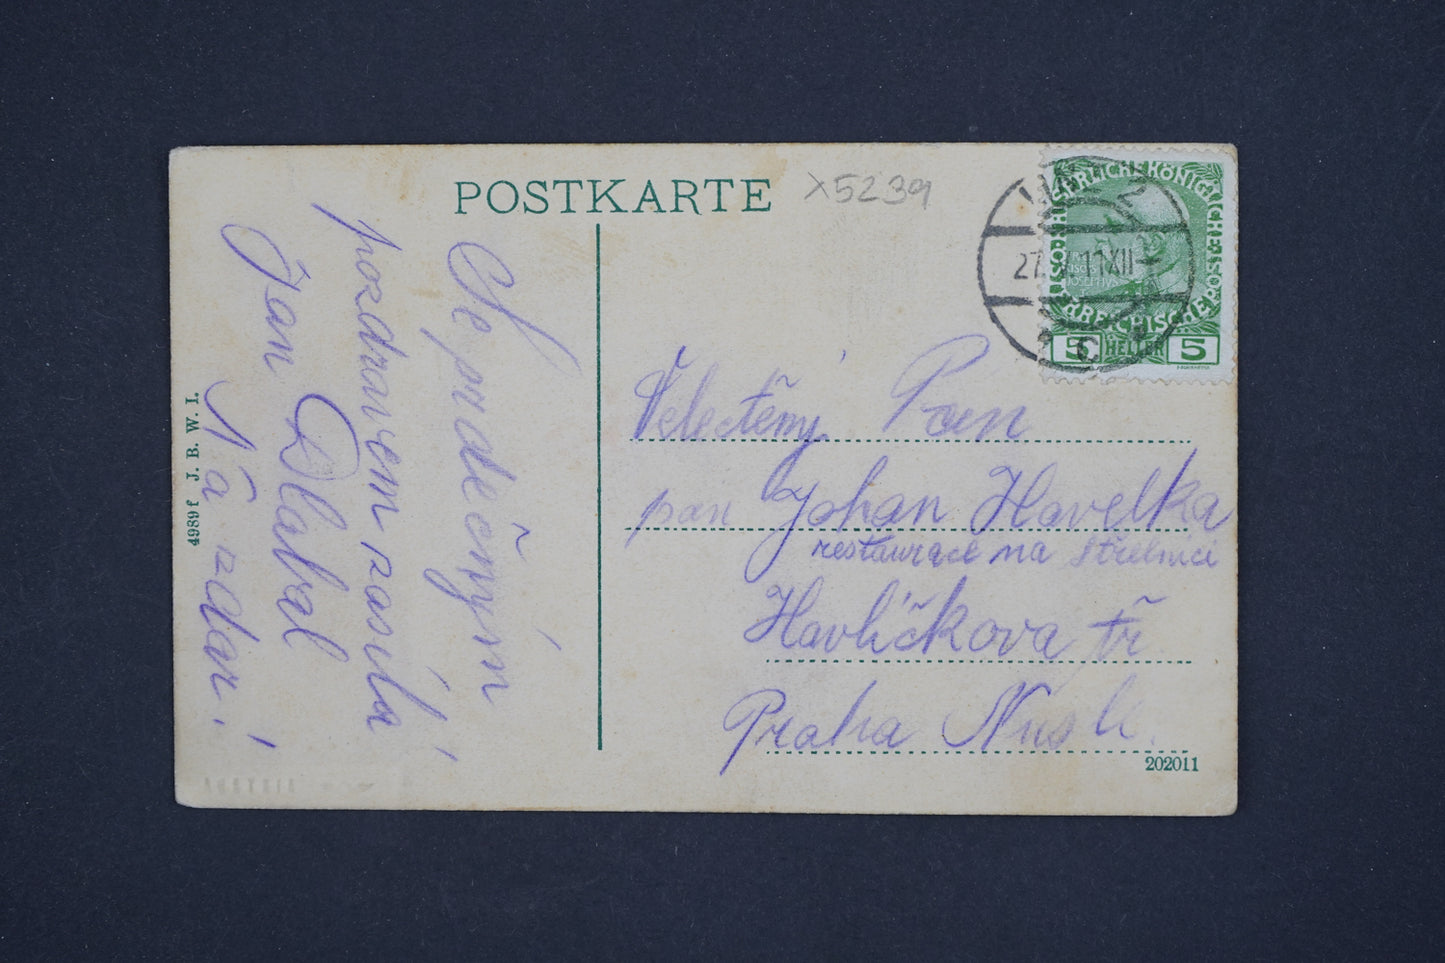 POSTKARTE
x5239
Se srdečným
pozdravem zasílá
Jan Dlabal
Na zdar!
4989f J. B. W. I.
KAISERLICHE KÖNIGLICHE
ÖSTERREICHISCHE POST
5 HELLER 5
2
27. 11 XII
c
Velectěný Pan
pan Johan Havelka
restaurace na Střelnici
Havlíčkova tř
Praha Nusle.
202011